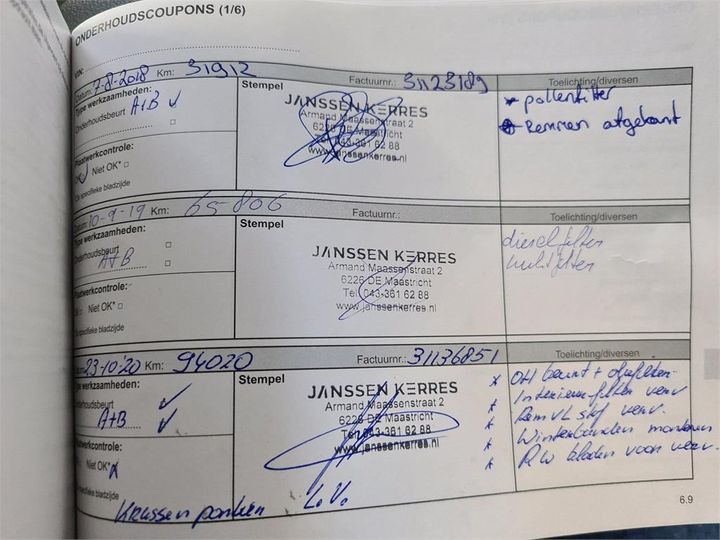 ONDERHOUDSCOUPONS (1/6)
VIN:
Datum: 7-8-2018 Km: 31912 Factuurnr.: 31123189 Toelichting/diversen
Type werkzaamheden:
Onderhoudsbeurt A+B ✓
Plaatwerkcontrole:
Niet OK*
Zie specifieke bladzijde
Stempel
JANSSEN KERRES
Armand Maassenstraat 2
6226 DE Maastricht
Tel. 043-361 62 88
www.janssenkerres.nl
* pollenfilter
* Remmen afgekant
Datum: 10-9-19 Km: 65-806 Factuurnr.: Toelichting/diversen
Type werkzaamheden:
Onderhoudsbeurt
A+B
Plaatwerkcontrole:
OK Niet OK*
Zie specifieke bladzijde
Stempel
JANSSEN KERRES
Armand Maassenstraat 2
6226 DE Maastricht
Tel. 043-361 62 88
www.janssenkerres.nl
dieselfilter
Datum: 23-10-'20 Km: 94020 Factuurnr.: 31136851 Toelichting/diversen
Type werkzaamheden:
Onderhoudsbeurt ✓
A+B ✓
Plaatwerkcontrole:
Niet OK* x
Zie specifieke bladzijde
Stempel
JANSSEN KERRES
Armand Maassenstraat 2
6226 DE Maastricht
Tel. 043-361 62 88
www.janssenkerres.nl
x OH beurt +
x Interieurfilter verv
x Rem vl stof verv.
x Winterbanden monteren
x RW bladen voor verv.
Krassen
6.9